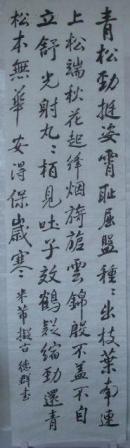 青松勁挺姿霄耻屈盤種〻出枝葉牽連
上松端秋花起絳烟旖旎雲錦殷不羞不自
立舒光射丸〻栢見吐子效鶴疑縮頸還青
松本無華安得保歲寒
米芾擬古 德群書